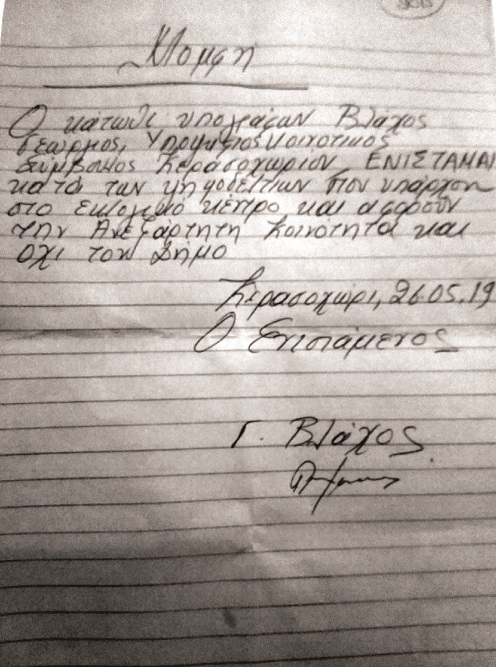 Μομφη
Ο κάτωθι υπογράφων Βλάχος
Γεώργιος, Υποψήφιος Κοινοτικός
Σύμβουλος Κερασοχωρίου, ΕΝΙΣΤΑΜΑΙ
κατά των ψηφοδελτίων που υπάρχουν
στο εκλογικό κέντρο και αφορούν
την Ανεξάρτητη Κοινότητα και
όχι τον Δήμο
Κερασοχώρι, 26.05.19
Ο Ενιστάμενος
Γ. Βλάχος